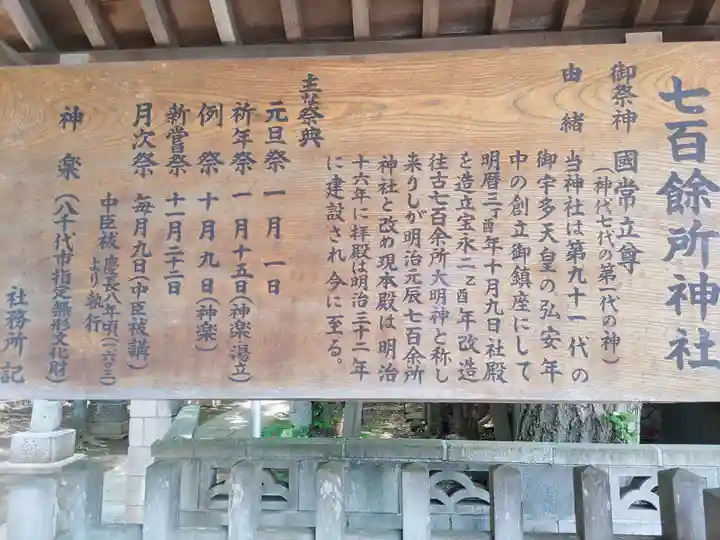 七百餘所神社
御祭神 國常立尊
(神代七代の第一代の神)
由緒 当神社は第九十一代の
御宇多天皇の弘安年
中の創立御鎮座にして
明暦三丁酉年十月九日社殿
を造立宝永二乙酉年改造
往古七百余所大明神と称し
来りしが明治元辰七百余所
神社と改め現本殿は明治
十六年に拝殿は明治三十二年
に建設され今に至る。
主な祭典
元旦祭 一月一日
祈年祭 一月十五日(神楽湯立)
例祭 十月九日(神楽)
新嘗祭 十一月二十二日
月次祭 毎月九日(中臣祓講)
中臣祓 慶長八年頃(一六〇三)
より執行
神楽(八千代市指定無形文化財)
社務所記